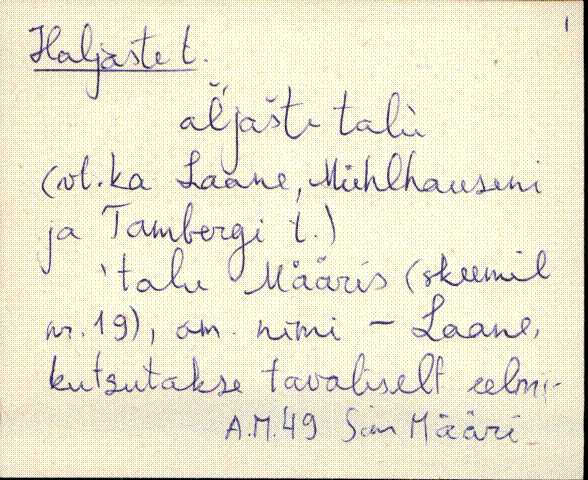 1
Haljaste t.
al̆jašte talù
(vt.ka Laane, Mühlhauseni
ja Tambergi t.)
'talu Määris (skeemil
nr. 19), om. nimi – Laane,
kutsutakse tavaliselt eelmi-
A.M.49 Sim Määri